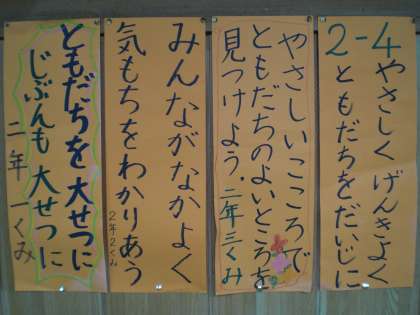 2-4
やさしく げんきよく
ともだちをだいじに
やさしいこころで
ともだちのよいところを
見つけよう. 二年三くみ
みんながなかよく
気もちをわかりあう
2年2くみ
ともだちを大せつに
じぶんも大せつに
二年一くみ